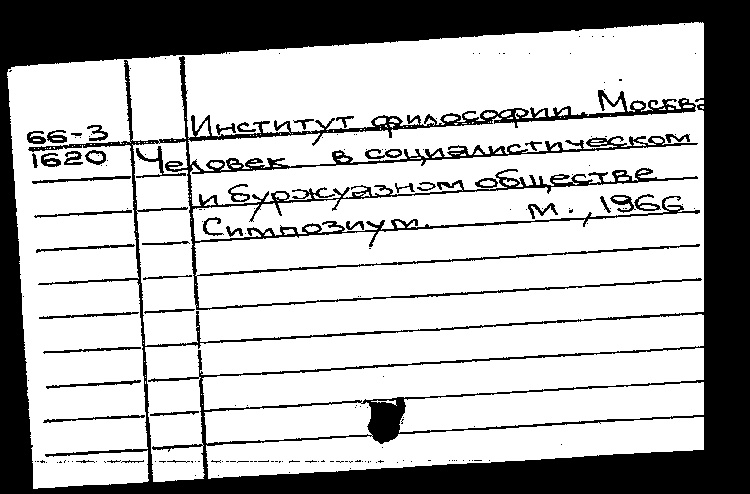 66-3
1620
Институт философии. Москва
Человек в социалистическом
и буржуазном обществе
Симпозиум. М., 1966